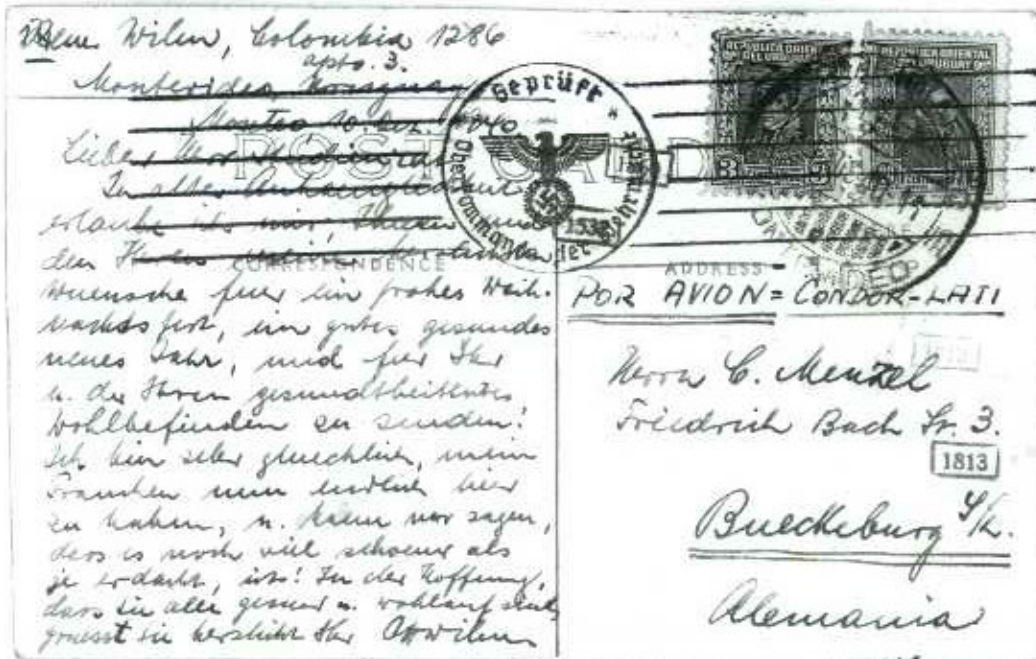 Wilm, Colombia 1286
apto. 3.
Montevideo, Uruguay
Montev. 10. Dez. 1940
POST CARD
Lieber Herr
In alter Anhaenglichkeit
erlaube ich mir, Ihnen und
den Ihren meine herzlichsten
CORRESPONDENCE
Wuensche fuer ein frohes Weih-
nachtsfest, ein gutes gesundes
neues Jahr, und fuer Ihr
u. der Ihren gesundheitliches
Wohlbefinden zu senden!
Ich bin selber gluecklich, mein
Frauchen nun endlich hier
zu haben, u. kann nur sagen,
dass es noch viel schoener als
je erdacht, ist! In der Hoffnung,
dass sie alle gesund u. wohlauf sind,
gruesst sie herzlichst Ihr
Geprüft
Oberkommando der Wehrmacht
REPUBLICA ORIENTAL
DEL URUGUAY
REPUBLICA ORIENTAL
DEL URUGUAY
ADDRESS
POR AVION = CONDOR-LATI
1813
Herrn C. Menzel
Friedrich Bach Str. 3.
1813
Bueckeburg
Alemania